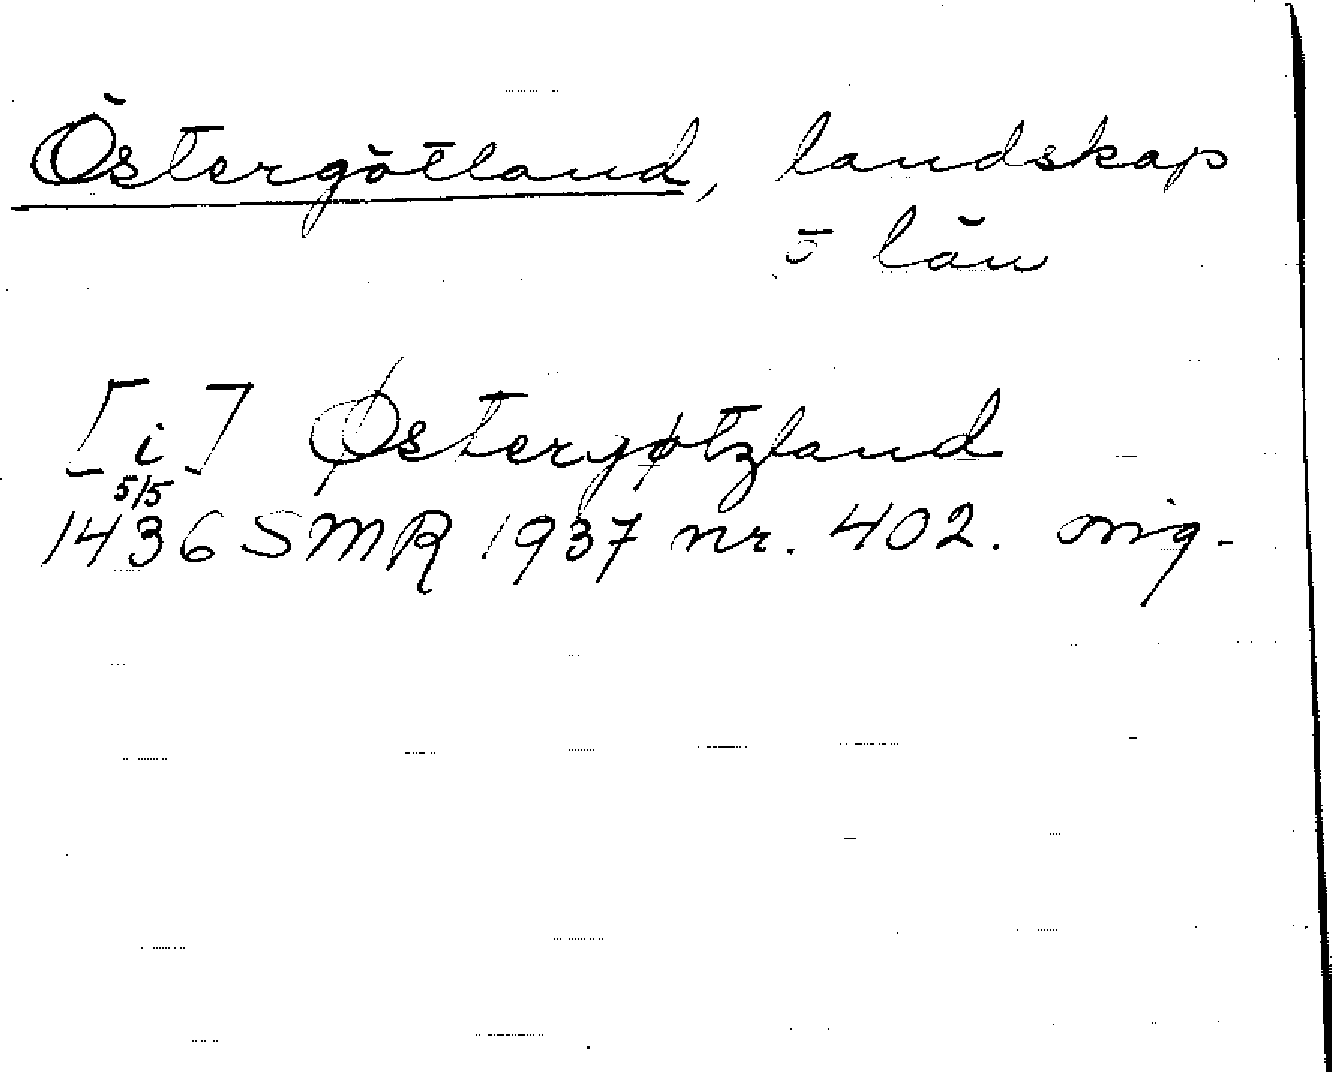 Östergötland, landskap
ö län
[i] Østergøtzland
5/5
1436 SMR 1937 nr. 402. orig.